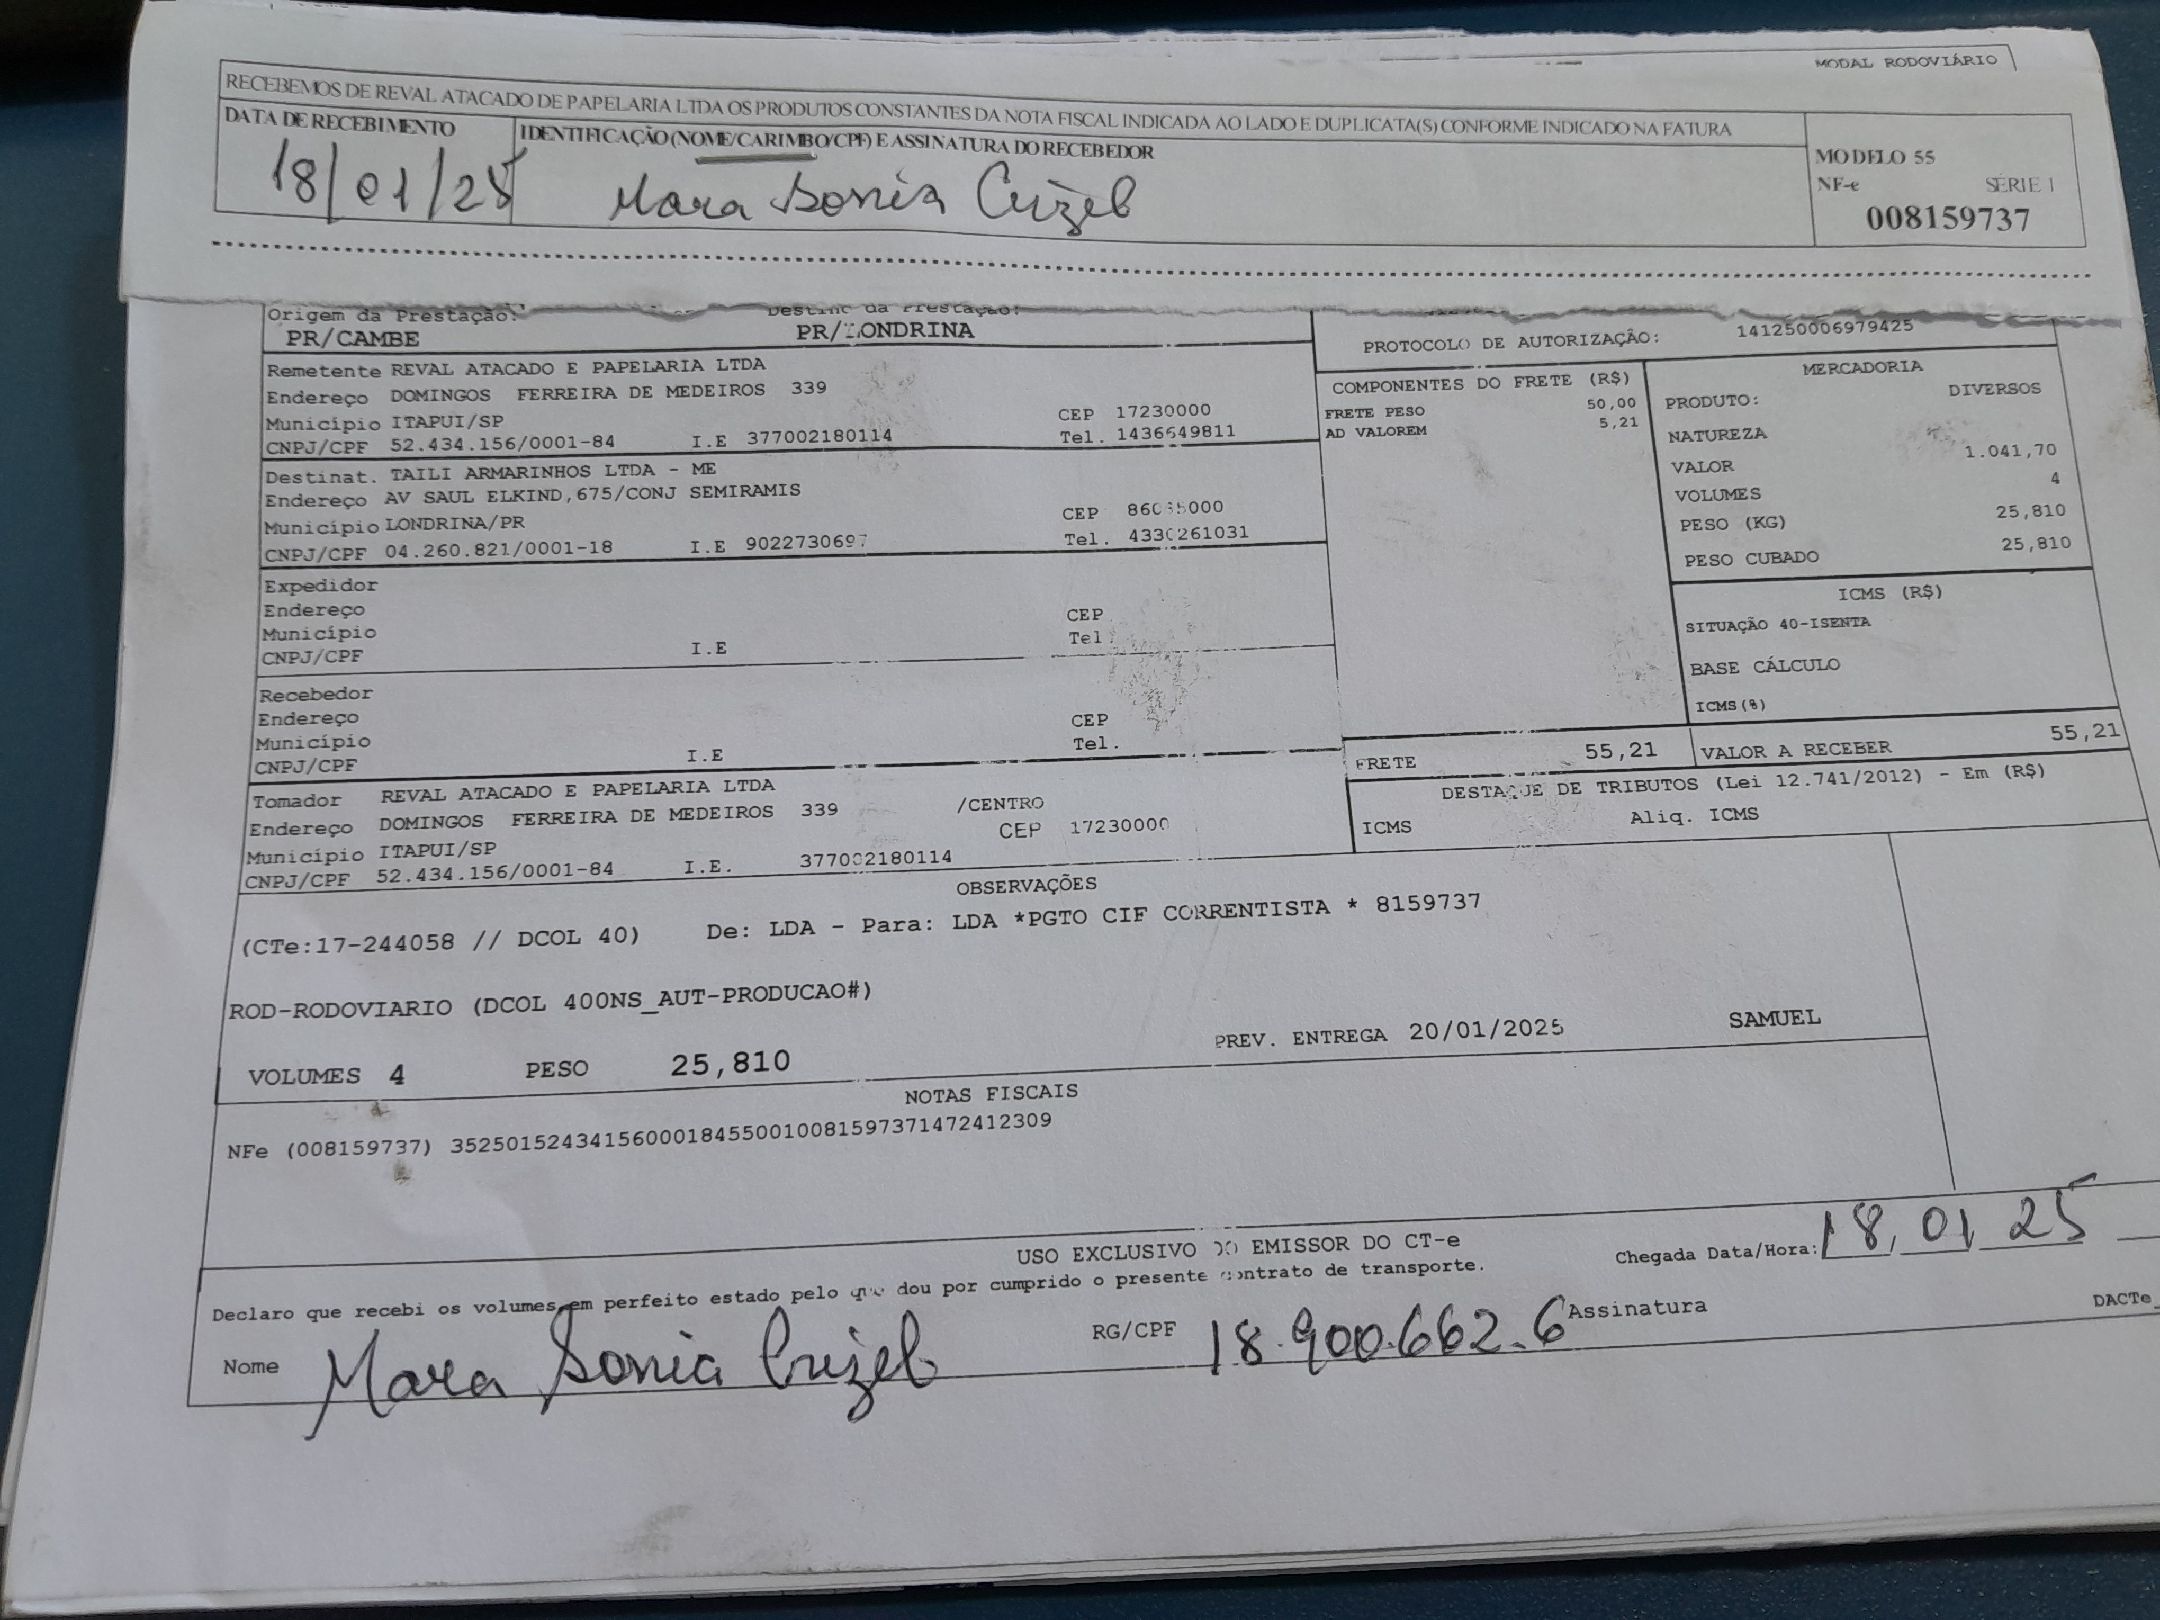 MODAL RODOVIÁRIO
RECEBEMOS DE REVAL ATACADO DE PAPELARIA LTDA OS PRODUTOS CONSTANTES DA NOTA FISCAL INDICADA AO LADO E DUPLICATA(S) CONFORME INDICADO NA FATURA
DATA DE RECEBIMENTO IDENTIFICAÇÃO (NOME/CARIMBO/CPF) E ASSINATURA DO RECEBEDOR
18/01/25 Mara Sonia
MODELO 55
NF-e SÉRIE 1
008159737
Origem da Prestação: Destino da Prestação:
PR/CAMBE PR/LONDRINA
PROTOCOLO DE AUTORIZAÇÃO: 141250006979425
Remetente REVAL ATACADO E PAPELARIA LTDA
Endereço DOMINGOS FERREIRA DE MEDEIROS 339
Município ITAPUI/SP CEP 17230000
CNPJ/CPF 52.434.156/0001-84 I.E 377002180114 Tel. 1436649811
Destinat. TAILI ARMARINHOS LTDA - ME
Endereço AV SAUL ELKIND,675/CONJ SEMIRAMIS
Município LONDRINA/PR CEP
CNPJ/CPF 04.260.821/0001-18 I.E 9022730697 Tel. 4330261031
Expedidor
Endereço CEP
Município Tel.
CNPJ/CPF I.E
Recebedor
Endereço CEP
Município Tel.
CNPJ/CPF I.E
Tomador REVAL ATACADO E PAPELARIA LTDA
Endereço DOMINGOS FERREIRA DE MEDEIROS 339 /CENTRO
Município ITAPUI/SP CEP 17230000
CNPJ/CPF 52.434.156/0001-84 I.E. 377002180114
COMPONENTES DO FRETE (R$)
FRETE PESO 50,00
AD VALOREM 5,21
MERCADORIA
PRODUTO: DIVERSOS
NATUREZA
VALOR 1.041,70
VOLUMES 4
PESO (KG) 25,810
PESO CUBADO 25,810
ICMS (R$)
SITUAÇÃO 40-ISENTA
BASE CÁLCULO
ICMS(%)
FRETE 55,21 VALOR A RECEBER 55,21
DESTAQUE DE TRIBUTOS (Lei 12.741/2012) - Em (R$)
ICMS Aliq. ICMS
OBSERVAÇÕES
(CTe:17-244058 // DCOL 40) De: LDA - Para: LDA *PGTO CIF CORRENTISTA * 8159737
ROD-RODOVIARIO (DCOL 400NS_AUT-PRODUCAO#)
VOLUMES 4 PESO 25,810 PREV. ENTREGA 20/01/2025 SAMUEL
NOTAS FISCAIS
NFe (008159737) 35250152434156000184550010081597371472412309
USO EXCLUSIVO DO EMISSOR DO CT-e
Chegada Data/Hora: 18, 01, 25
Declaro que recebi os volumes em perfeito estado pelo que dou por cumprido o presente contrato de transporte.
Nome Mara Sonia RG/CPF 18.900.662.6 Assinatura DACTe_